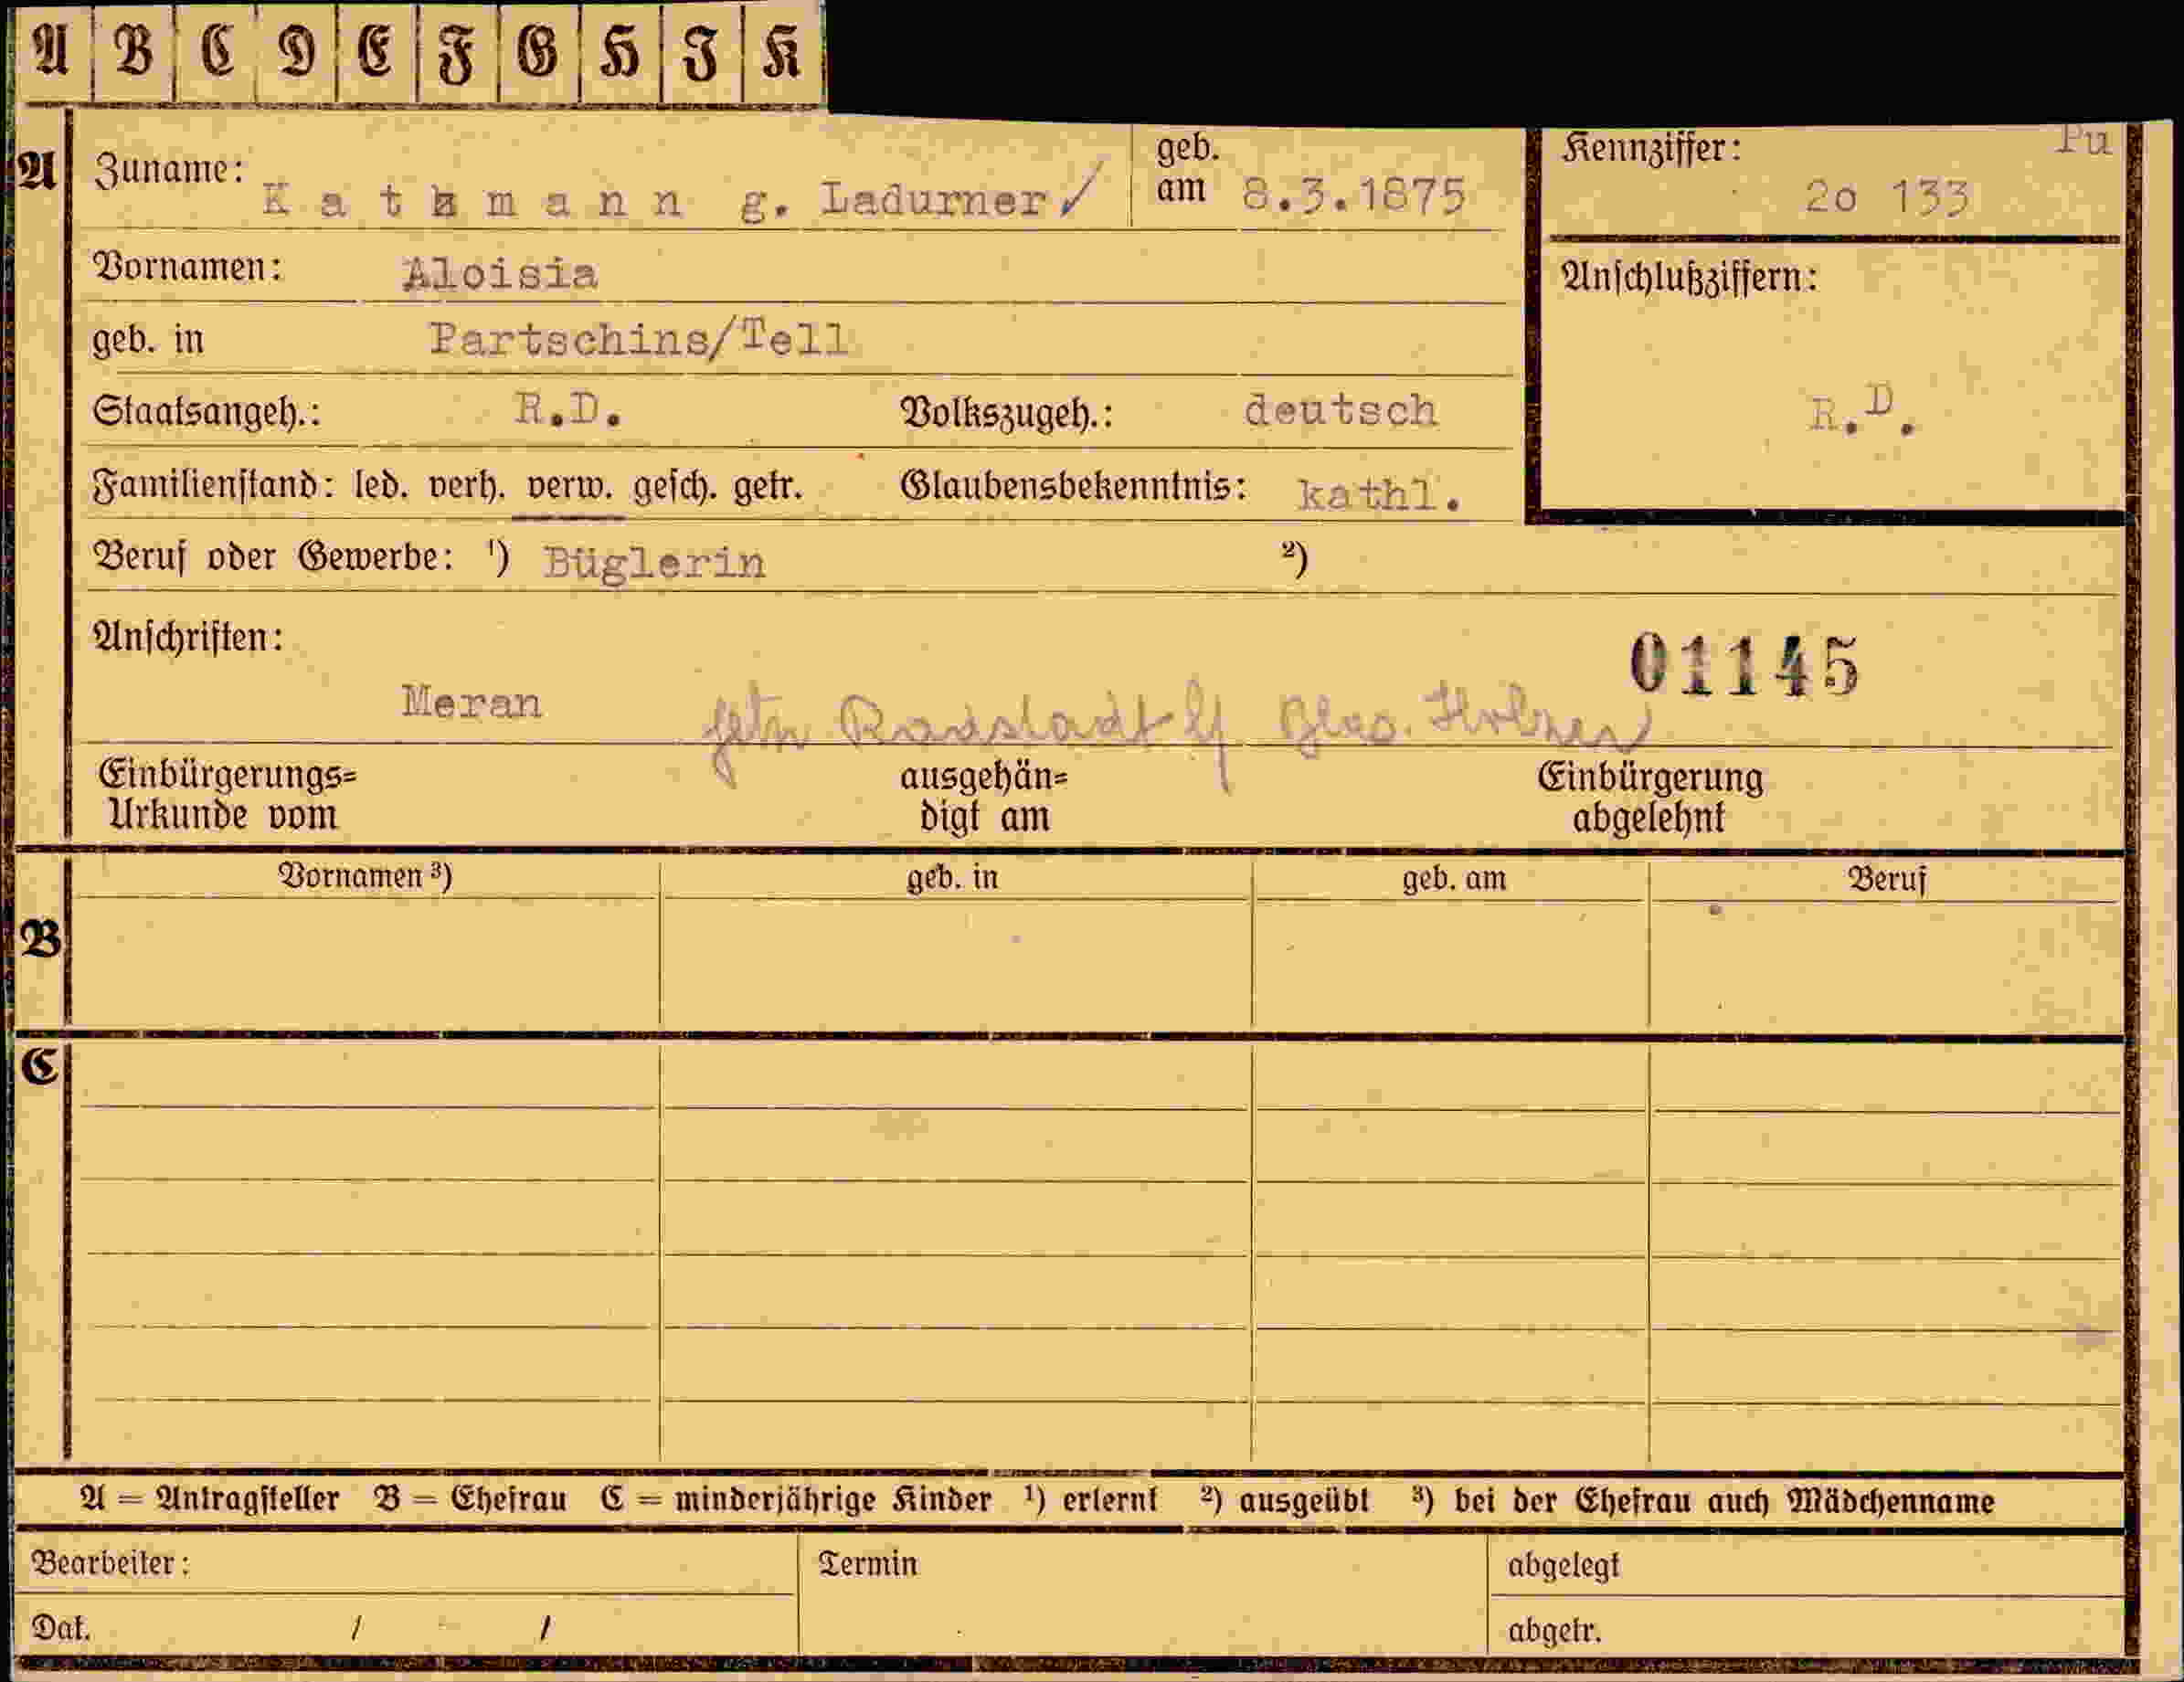 A B C D E F G H J K
A Zuname: Katzmann g. Ladurner ✓ geb. am 8.3.1875
Kennziffer: Pu
2o 133
Vornamen: Aloisia
Anschlußziffern:
geb. in Partschins/Tell
Staatsangeh.: R.D. Volkszugeh.: deutsch
R.D.
Familienstand: led. verh. verw. gesch. getr. Glaubensbekenntnis: kathl.
Beruf oder Gewerbe: ¹) Büglerin ²)
Anschriften:
01145
Meran Radstadt
Einbürgerungs= ausgehän= Einbürgerung
Urkunde vom digt am abgelehnt
Vornamen ³) geb. in geb. am Beruf
B
C
A = Antragsteller B = Ehefrau C = minderjährige Kinder ¹) erlernt ²) ausgeübt ³) bei der Ehefrau auch Mädchenname
Bearbeiter: Termin abgelegt
Dat. / / abgetr.